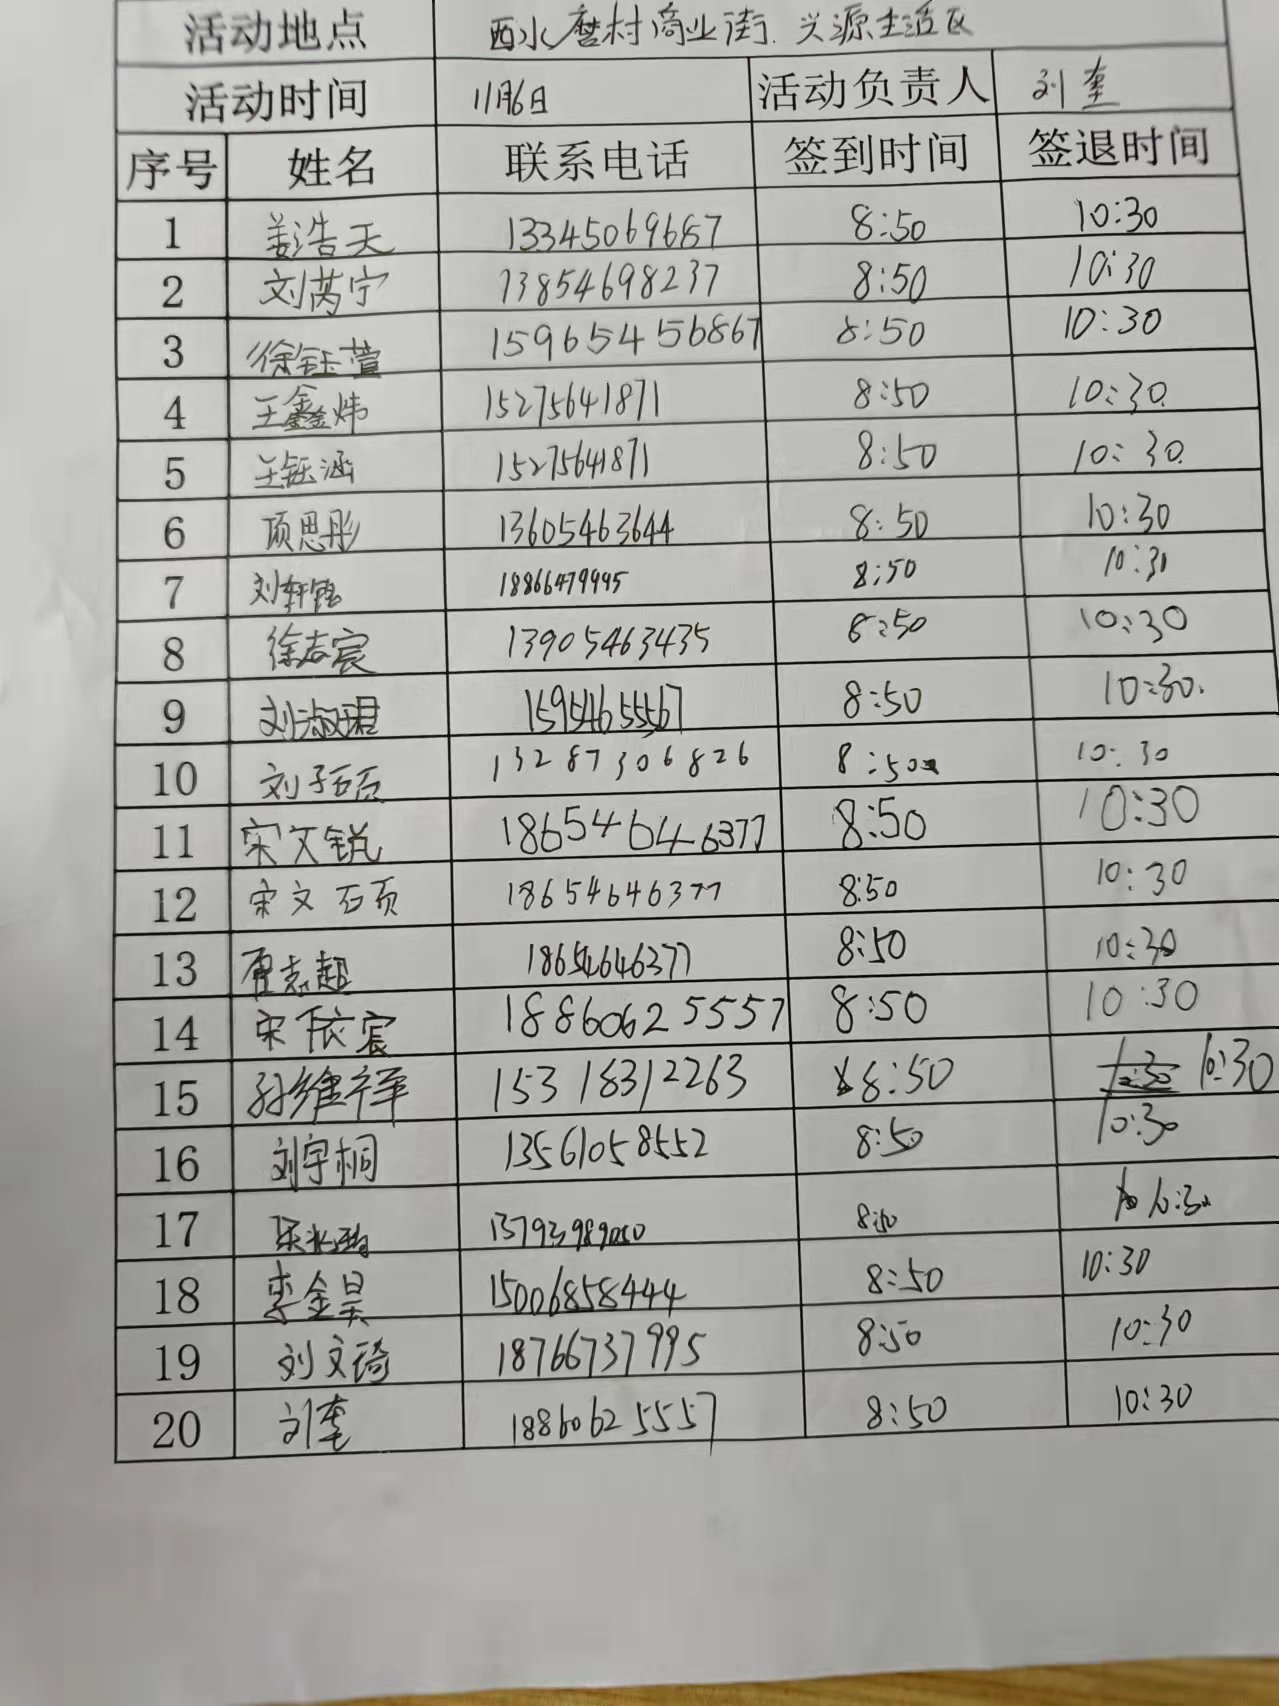 活动地点 西水磨村商业街、兴源生活区
活动时间 11月6日 活动负责人 刘奎
序号 姓名 联系电话 签到时间 签退时间
1 姜浩天 13345069687 8:50 10:30
2 刘芮宁 13854698237 8:50 10:30
3 徐钰萱 159654 56867 8:50 10:30
4 王鑫炜 15275641871 8:50 10:30
5 王钰涵 15275641871 8:50 10:30
6 项思彤 13605463644 8:50 10:30
7 刘轩铭 18866479995 8:50 10:30
8 徐志宸 13905463435 8:50 10:30
9 刘淑珺 15954655567 8:50 10:30.
10 刘子硕 13287306826 8:50 10:30
11 宋文锐 18654646377 8:50 10:30
12 宋文硕 18654646377 8:50 10:30
13 志超 18654646377 8:50 10:30
14 宋依宸 18860625557 8:50 10:30
15 孙维祥 15318312263 8:50 10:30
16 刘宇桐 13561058552 8:50 10:30
17 8:50 10:30
18 李金昊 15006858444 8:50 10:30
19 刘文琦 18766737995 8:50 10:30
20 刘奎 18860625557 8:50 10:30